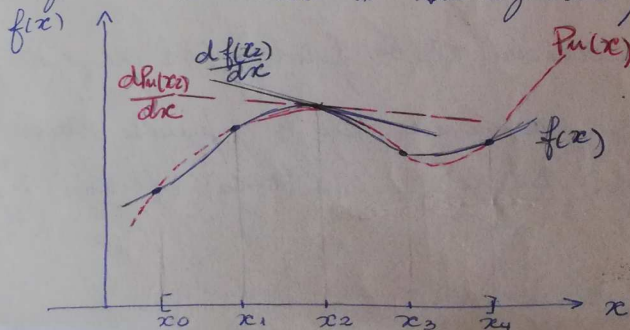 f(x)
df(x2)
dx
Pn(x)
dPn(x2)
dx
f(x)
x0 x1 x2 x3 x4 x